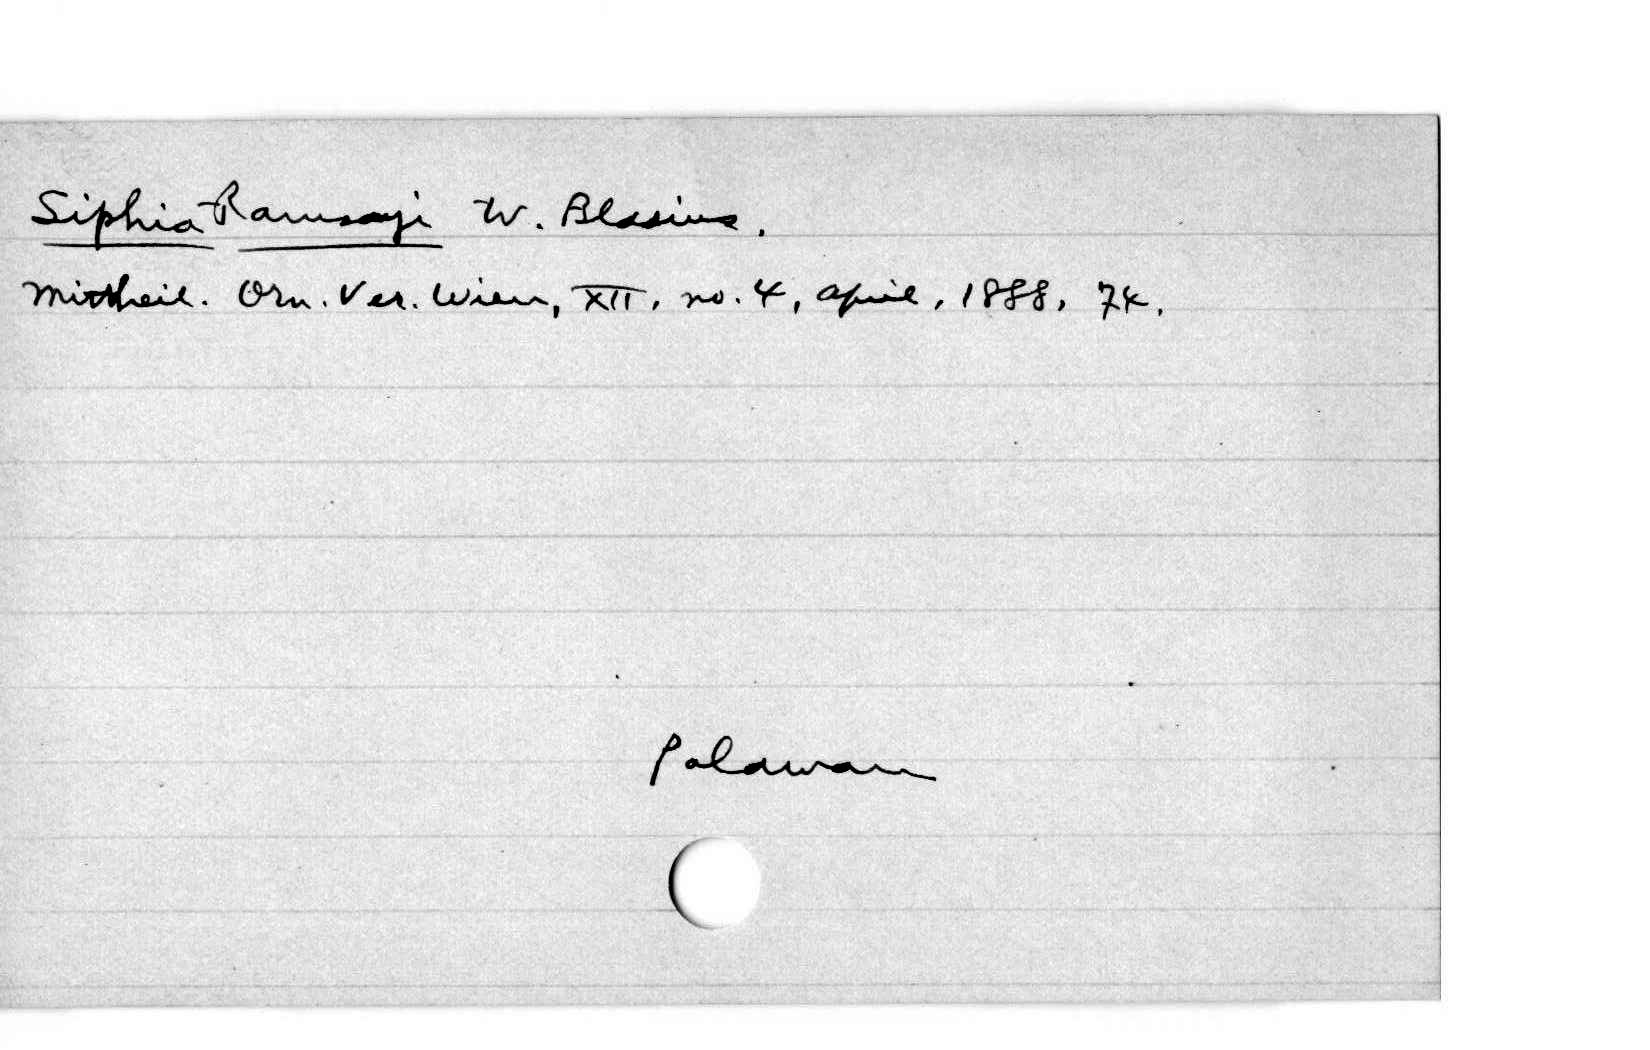 Siphia Ramsayi W. Blasius.
Mittheil. Orn. Ver. Wien, XII, no. 4, April, 1888, 74.
Palawan